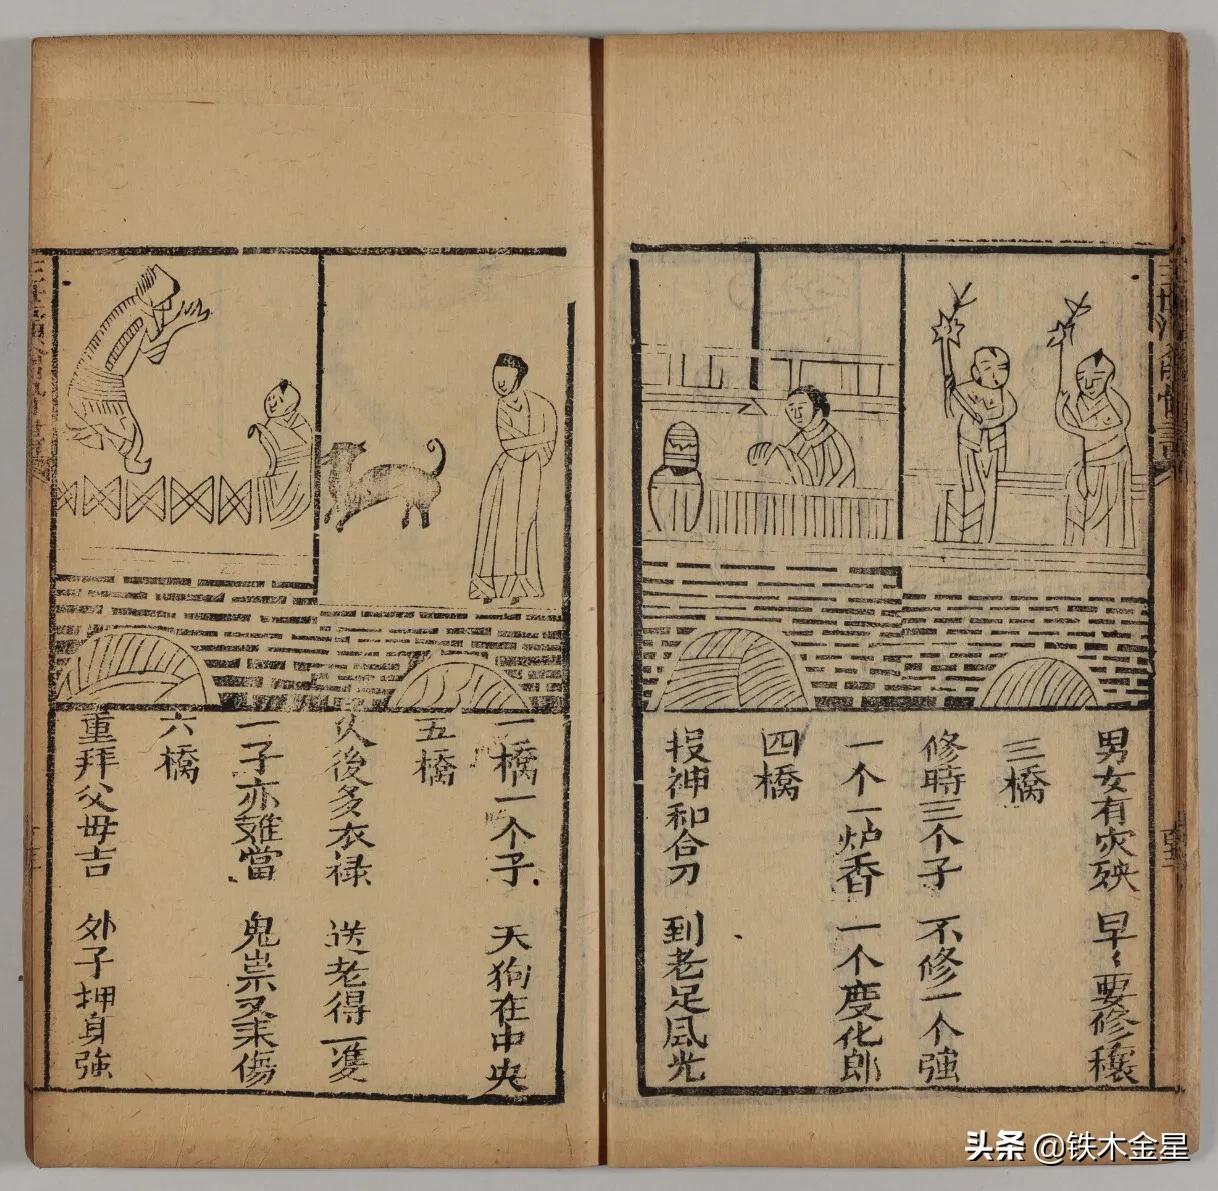 男女有灾殃 早〻要修穰
三橋
修時三个子 不修一个強
一个一炉香 一个度化郎
四橋
投神和合刀 到老足風光
一橋一个子 天狗在中央
五橋
後多衣禄 送老得一
一子亦难當 鬼祟又来傷
六橋
重拜父毋吉 外子押身強
头条 @铁木金星